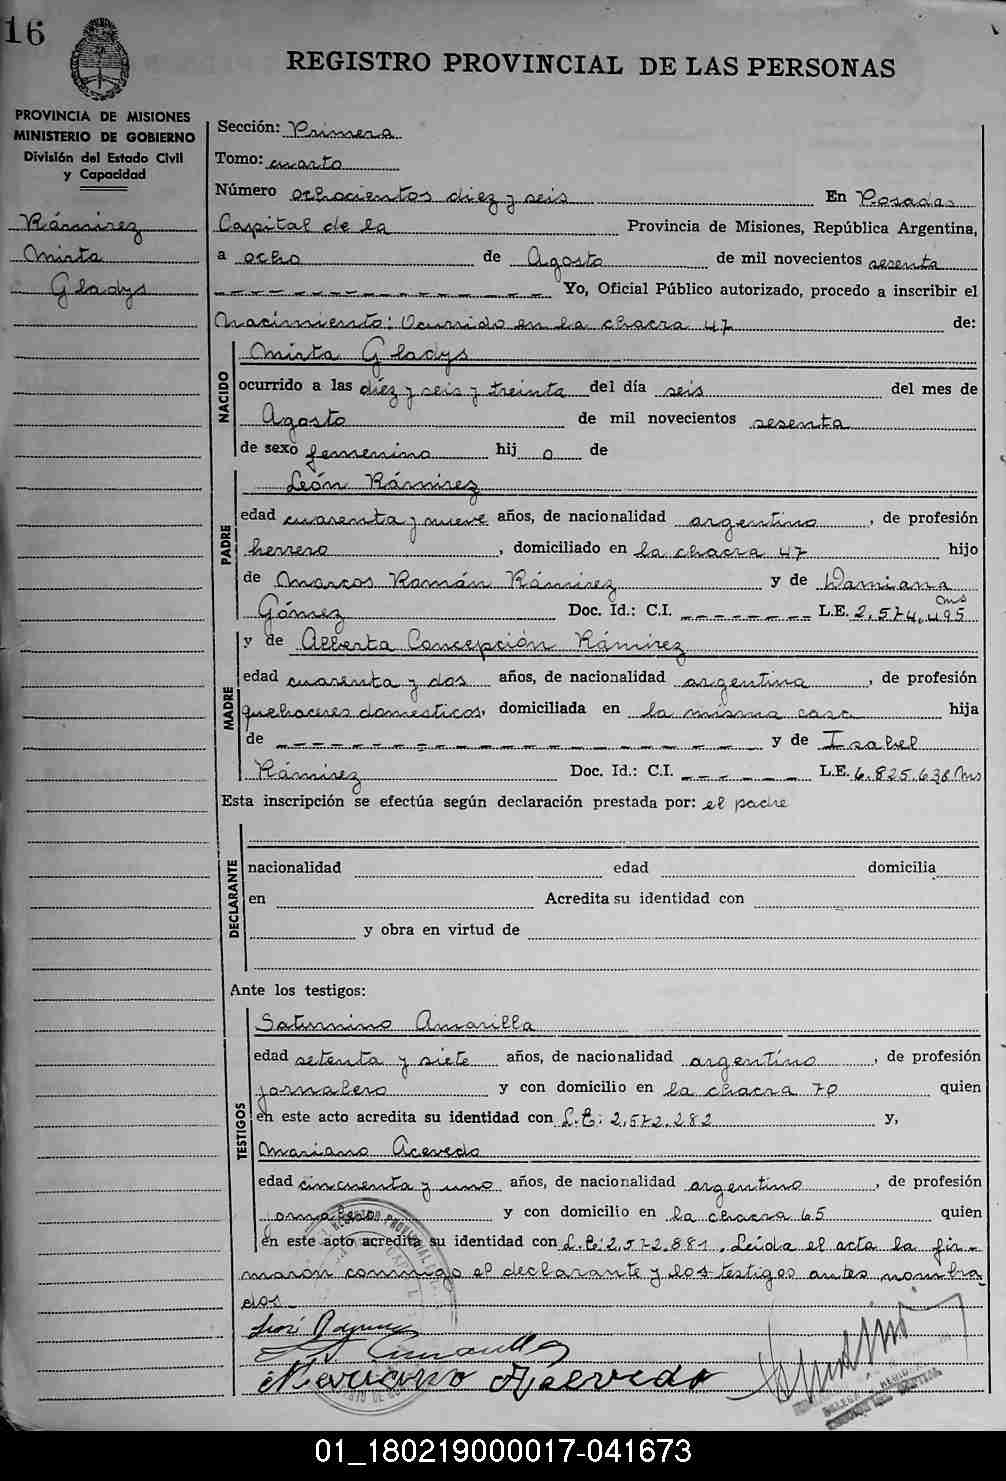 16
REGISTRO PROVINCIAL DE LAS PERSONAS
PROVINCIA DE MISIONES
MINISTERIO DE GOBIERNO
División del Estado Civil
y Capacidad
Rámirez
Mirta
Gladys
Sección: Primera
Tomo: cuarto
Número ochocientos diez y seis En Posadas
Capital de la Provincia de Misiones, República Argentina,
a ocho de Agosto de mil novecientos sesenta
Yo, Oficial Público autorizado, procedo a inscribir el
Nacimiento: Ocurrido en la chacra 47 de:
NACIDO
Mirta Gladys
ocurrido a las diez y seis y treinta del día seis del mes de
Agosto de mil novecientos sesenta
de sexo femenino hij o de
PADRE
León Rámirez
edad cuarenta y nueve años, de nacionalidad argentino, de profesión
herrero, domiciliado en la chacra 47 hijo
de Marcos Román Rámirez y de Damiana
Gómez Doc. Id.: C.I. L.E. 2.574.495 ms
MADRE
y de Alberta Concepción Rámirez
edad cuarenta y dos años, de nacionalidad argentina, de profesión
quehaceres domesticos, domiciliada en la misma casa hija
de y de Isabel
Rámirez Doc. Id.: C.I. L.E. 6.825.638 Ms
Esta inscripción se efectúa según declaración prestada por: el padre
DECLARANTE
nacionalidad edad domicilia
en Acredita su identidad con
y obra en virtud de
Ante los testigos:
TESTIGOS
Saturnino Amarilla
edad setenta y siete años, de nacionalidad argentino, de profesión
jornalero y con domicilio en la chacra 70 quien
en este acto acredita su identidad con L.E: 2.572.282 y,
Mariano Acevedo
edad cincuenta y uno años, de nacionalidad argentino, de profesión
jornalero y con domicilio en la chacra 65 quien
en este acto acredita su identidad con L.E: 2.572.881. Leída el acta la fir-
maron conmigo el declarante y los testigos antes nombra-
dos.
Amarilla
Mariano Acevedo
01_180219000017-041673